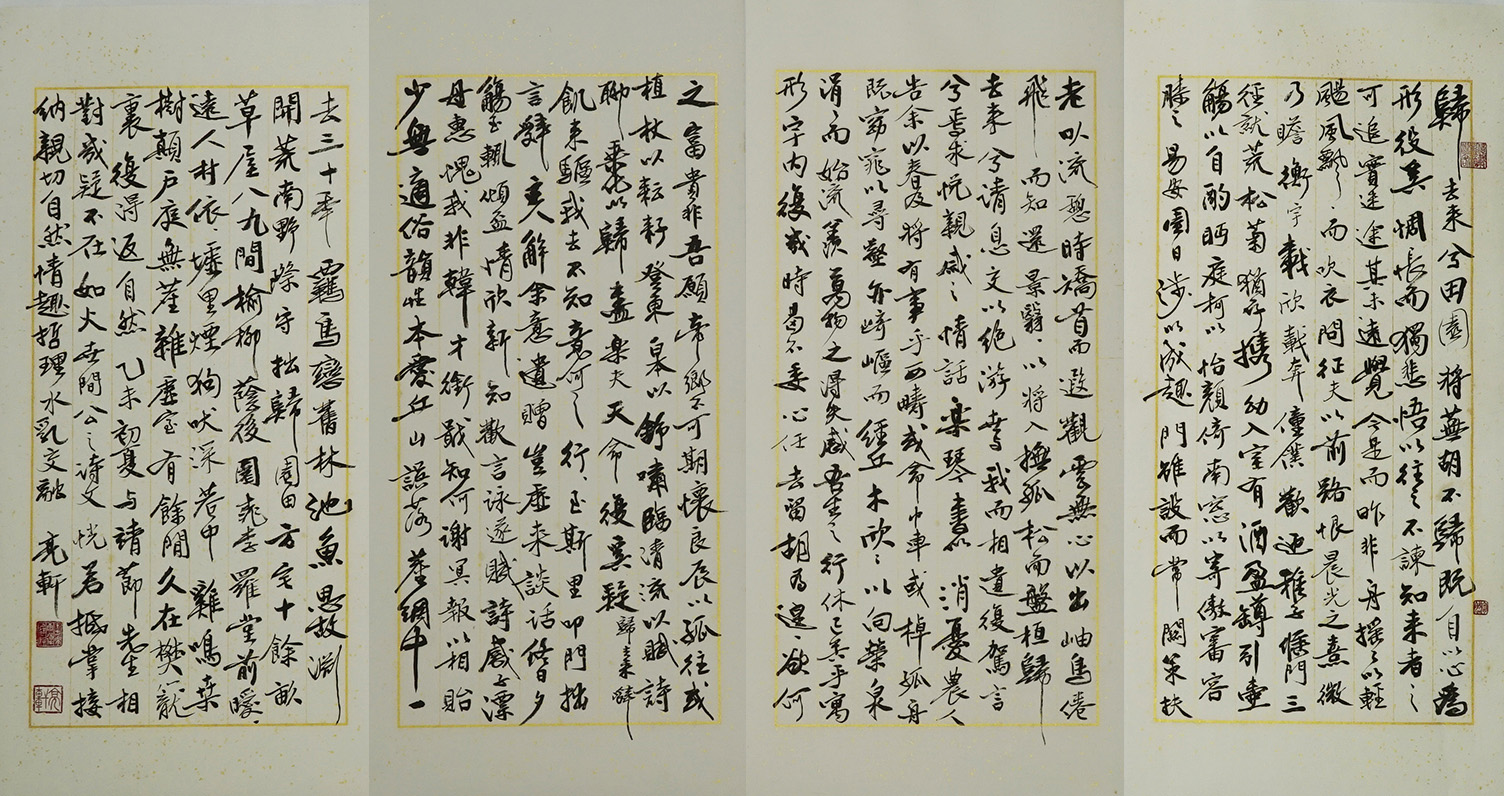 歸去來兮田園將蕪胡不歸既自以心爲
形役奚惆悵而獨悲悟以往之不諫知来者之
可追實迷途其未遠覺今是而昨非舟摇以輕
颺風飄飄而吹衣問征夫以前路恨晨光之熹微
乃瞻衡宇載欣載奔僮僕歡迎稚子候門三
徑就荒松菊猶存携幼入室有酒盈罇引壺
觴以自酌眄庭柯以怡顔倚南窓以寄傲審容
膝之易安園日涉以成趣門雖設而常關策扶
老以流憩時矯首而遐觀雲無心以出岫鳥倦
飛而知還景翳以将入撫孤松而盤桓歸
去来兮请息交以绝游世与我而相遺復駕言
兮焉求悦親戚之情話樂琴書以消憂農人
告余以春及将有事乎西疇或命巾車或棹孤舟
既窈窕以尋壑亦崎嶇而經丘木欣欣以向榮泉
涓涓而始流羨萬物之得失感吾生之行休已矣乎寓
形宇内復幾時曷不委心任去留胡為遑遑欲何
之富貴非吾願帝鄉不可期懷良辰以孤往或
植杖以耘耔登東皋以舒嘯臨清流以賦詩
聊乘化以歸盡樂夫天命復奚疑歸去来辭
飢来驅我去不知竟何之行行至斯里叩門拙
言辭主人解余意遺贈豈虚来談話终日夕
觴至輒傾盃情欣新知歡言詠遂賦詩感子漂
母惠愧我非韓才銜戢知何谢冥報以相貽
少無適俗韻性本愛丘山誤落塵網中一
去三十年羈鳥戀舊林池魚思故淵
開荒南野際守拙歸園田方宅十餘畝
草屋八九間榆柳蔭後園桃李羅堂前曖曖
遠人村依依墟里煙狗吠深巷中雞鳴桑
樹顛户庭無塵雜虚室有餘閒久在樊籠
裏復得返自然乙未初夏与靖節先生相
對感疑不在如火世間公之诗文恍若抵掌接
纳親切自然情趣哲理水乳交融亮軒